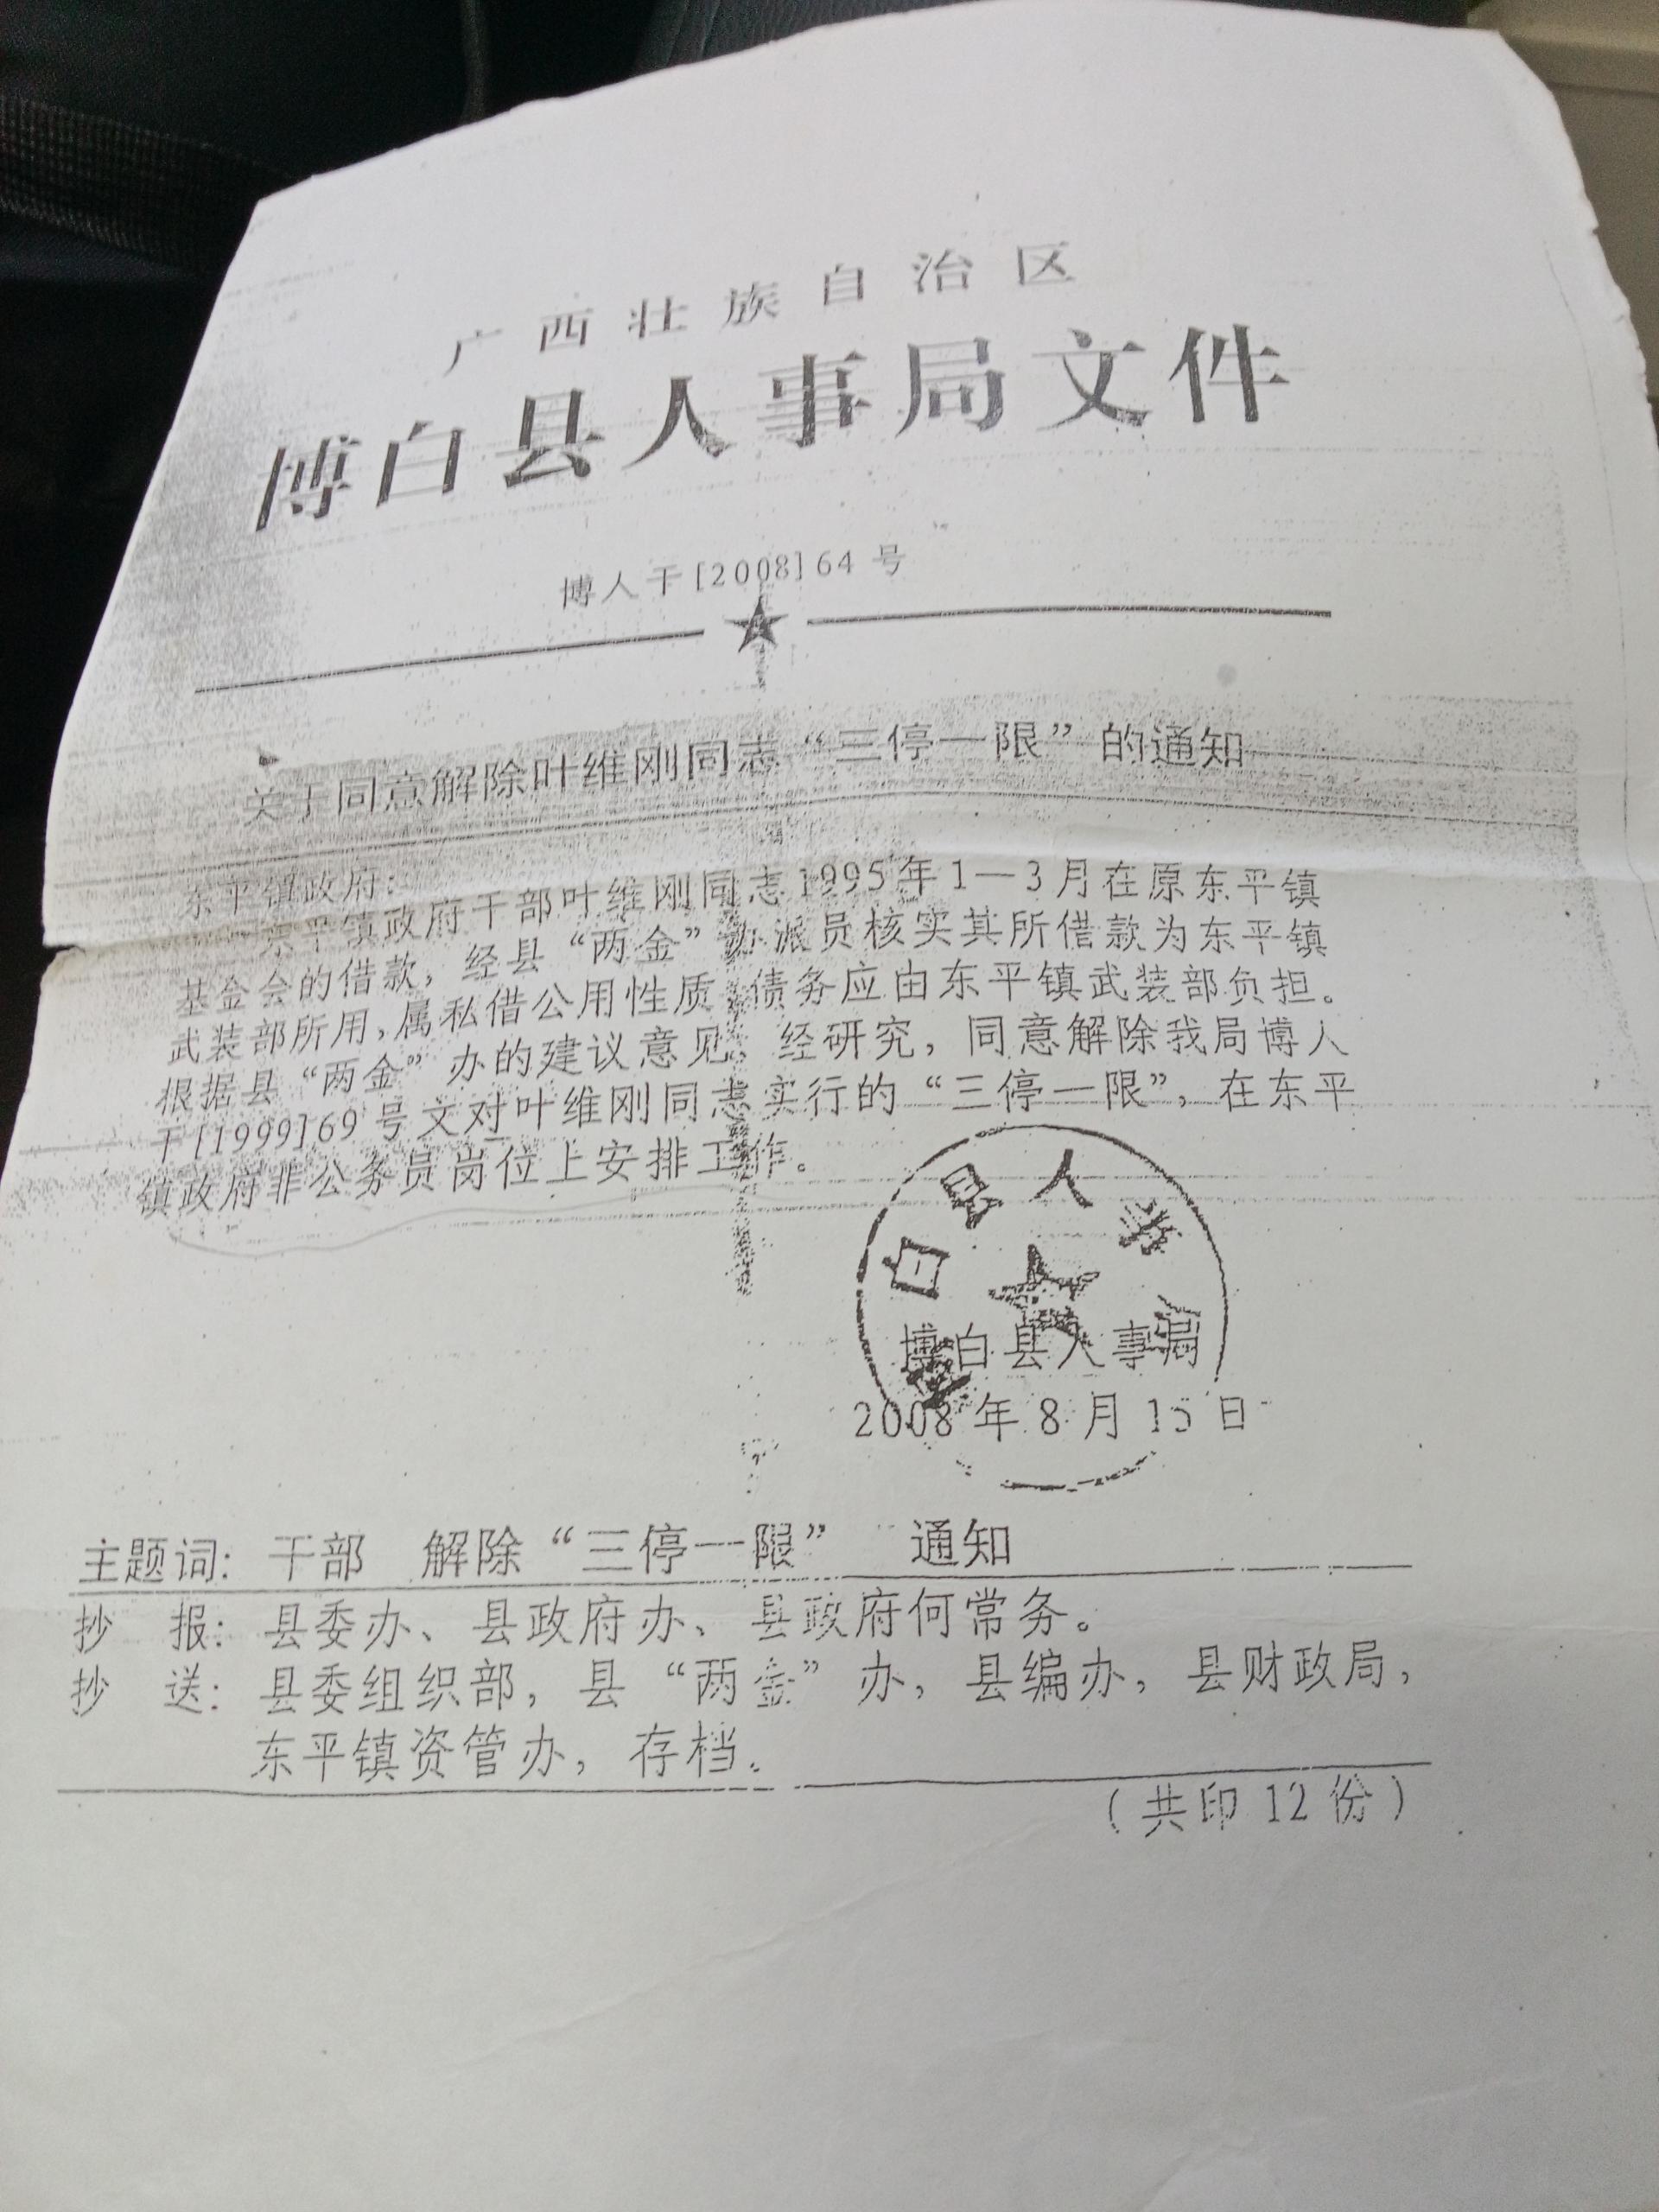 广西壮族自治区
博白县人事局文件
博人干[2008]64号
关于同意解除叶维刚同志“三停一限”的通知
东平镇政府：
东平镇政府干部叶维刚同志1995年1—3月在原东平镇
基金会的借款，经县“两金”办派员核实其所借款为东平镇
武装部所用，属私借公用性质，债务应由东平镇武装部负担。
根据县“两金”办的建议意见，经研究，同意解除我局博人
干[1999]69号文对叶维刚同志实行的“三停一限”，在东平
镇政府非公务员岗位上安排工作。
白县人事
博白县人事局
2008年8月15日
主题词：干部 解除“三停一限” 通知
抄 报：县委办、县政府办、县政府何常务。
抄 送：县委组织部，县“两金”办，县编办，县财政局，
东平镇资管办，存档。
（共印12份）